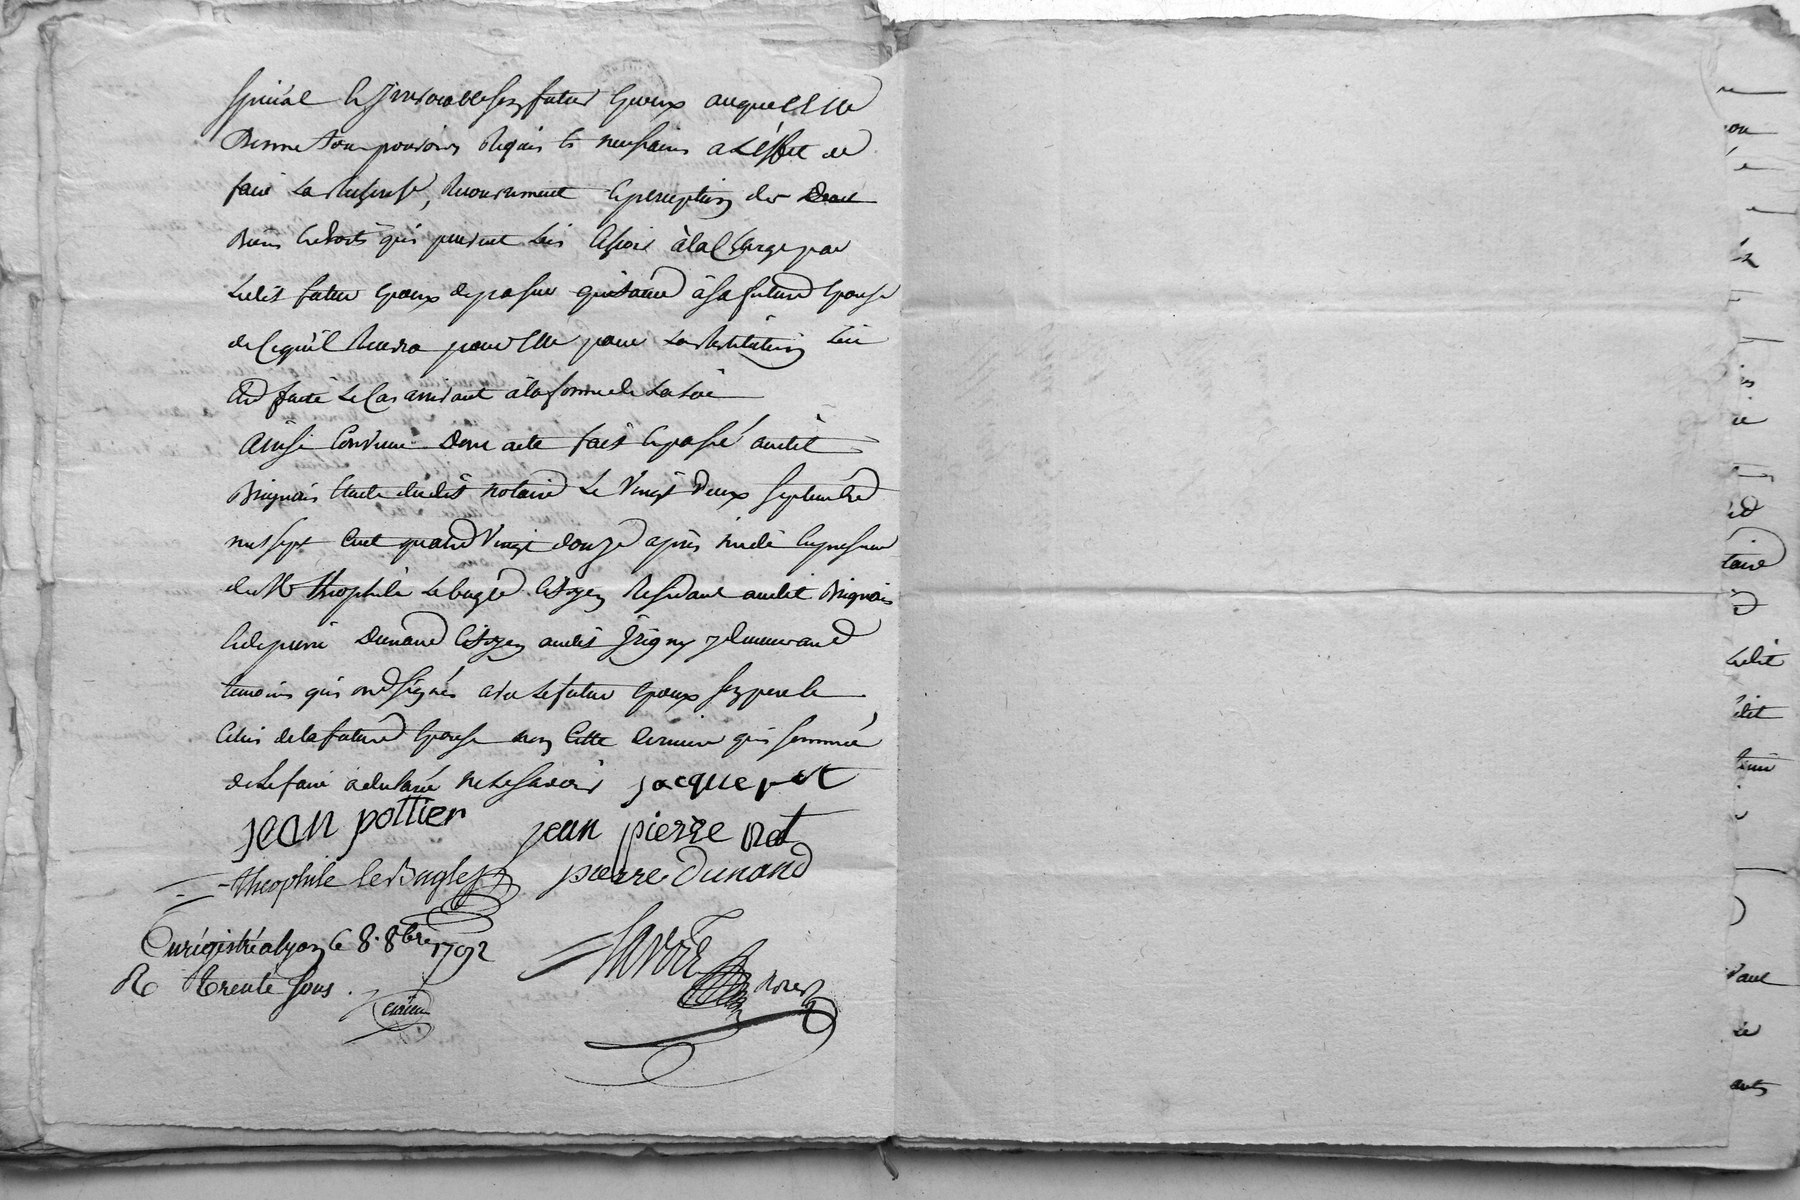 spécial et irrévocable son futur Epoux auquel Elle
Donne tous pouvoirs Requis et necessaires a L'éffet de
faire La Recherche, Recouvrement Et perception des
Biens Et droits qui peuvent Lui Echoir à la Charge par
Ledit futur Epoux de passer quittance à sa future Epouse
de Ce qu'il Recevra pour Elle pour La Restitution Lui
En Etre faite Le Cas arrivant à la forme de La Loi
Ainsi Convenu Dont acte fait Et passé audit
Brignais Etude dudit notaire Le Vingt Deux septembre
mil sept Cent quatre Vingt douze après midi En presence
de Mr théophile Le bugle Citoyen Résidant audit Brignais
Et de pierre Dunand Citoyen audit Irigny y demeurant
temoins qui ont signés avec Le futur Epoux son pere Et
Celui de la future Epouse non Cette derniere qui sommée
de Le faire a déclaré ne Le savoir jacque ret
jean pottier jean pierre Ret
théophile le Bugle pierre Dunand
Enrégistré a lyon le 8. 8bre 1792
R trente sous.